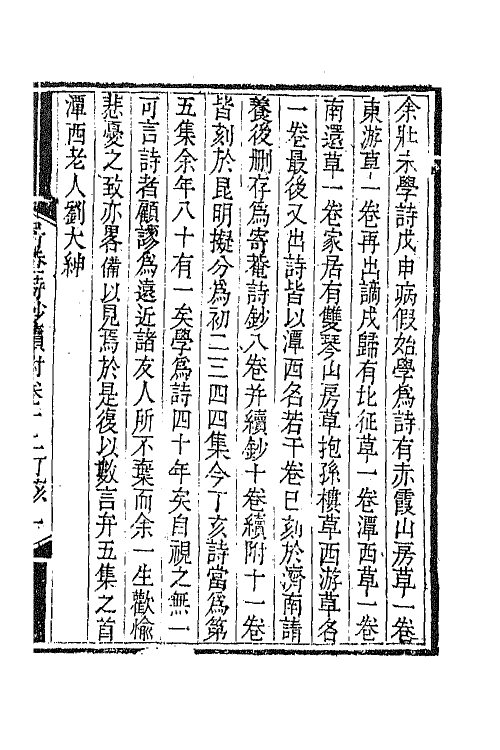 余壯未學詩戊申病假始學爲詩有赤霞山房草一卷
東游草一卷再出謫戍歸有北征草一卷潭西草一卷
南還草一卷家居有雙琴山房草抱孫樓草西游草各
一卷最後又出詩皆以潭西名若干卷已刻於濟南請
養後刪存爲寄菴詩鈔八卷并續鈔十卷續附十一卷
皆刻於昆明擬分爲初二三四四集今丁亥詩當爲第
五集余年八十有一矣學爲詩四十年矣自視之無一
可言詩者顧謬爲遠近諸友人所不棄而余一生歡愉
悲憂之致亦畧備以見焉於是復以數言弁五集之首
潭西老人劉大紳
寄菴詩鈔續附卷十二丁亥 一